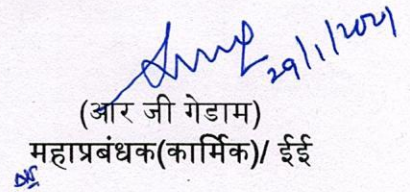 29/1/2021
(आर जी गेडाम)
महाप्रबंधक(कार्मिक)/ ईई